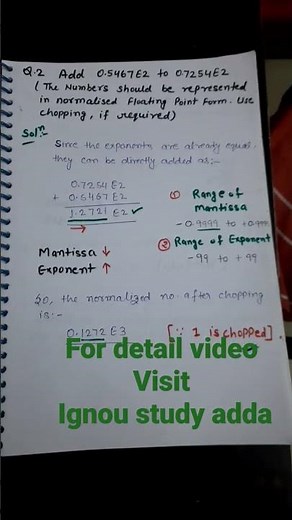 Q.2 Add 0.5467E2 to 0.7254E2
(The Numbers should be represented
in normalised Floating Point Form. Use
chopping, if required)
Solⁿ
Since the exponents are already equal
they can be directly added as:-
0.7254 E2
+ 0.5467 E2
1.2721 E2 ✓
→
Mantissa ↓
Exponent ↑
① Range of
mantissa
-0.9999 to +0.999
② Range of Exponent
-99 to +99
So, the normalized no. after chopping
is:-
0.1272 E3 [∵ 1 is chopped].
For detail video
Visit
Ignou study adda